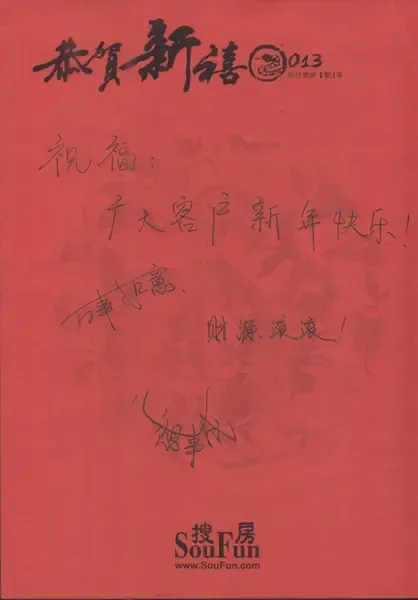 恭贺新禧2013
祝福:
广大客户新年快乐!
万事如意.
财源滚滚!
搜房
SouFun
www.SouFun.com